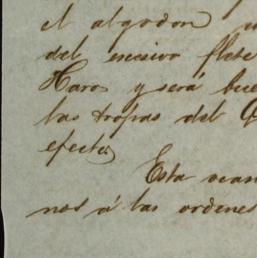 el algodon
del excesivo flete
Haro y será bue
las tropas del G
efecto
Esta ocan
nos á las ordenes